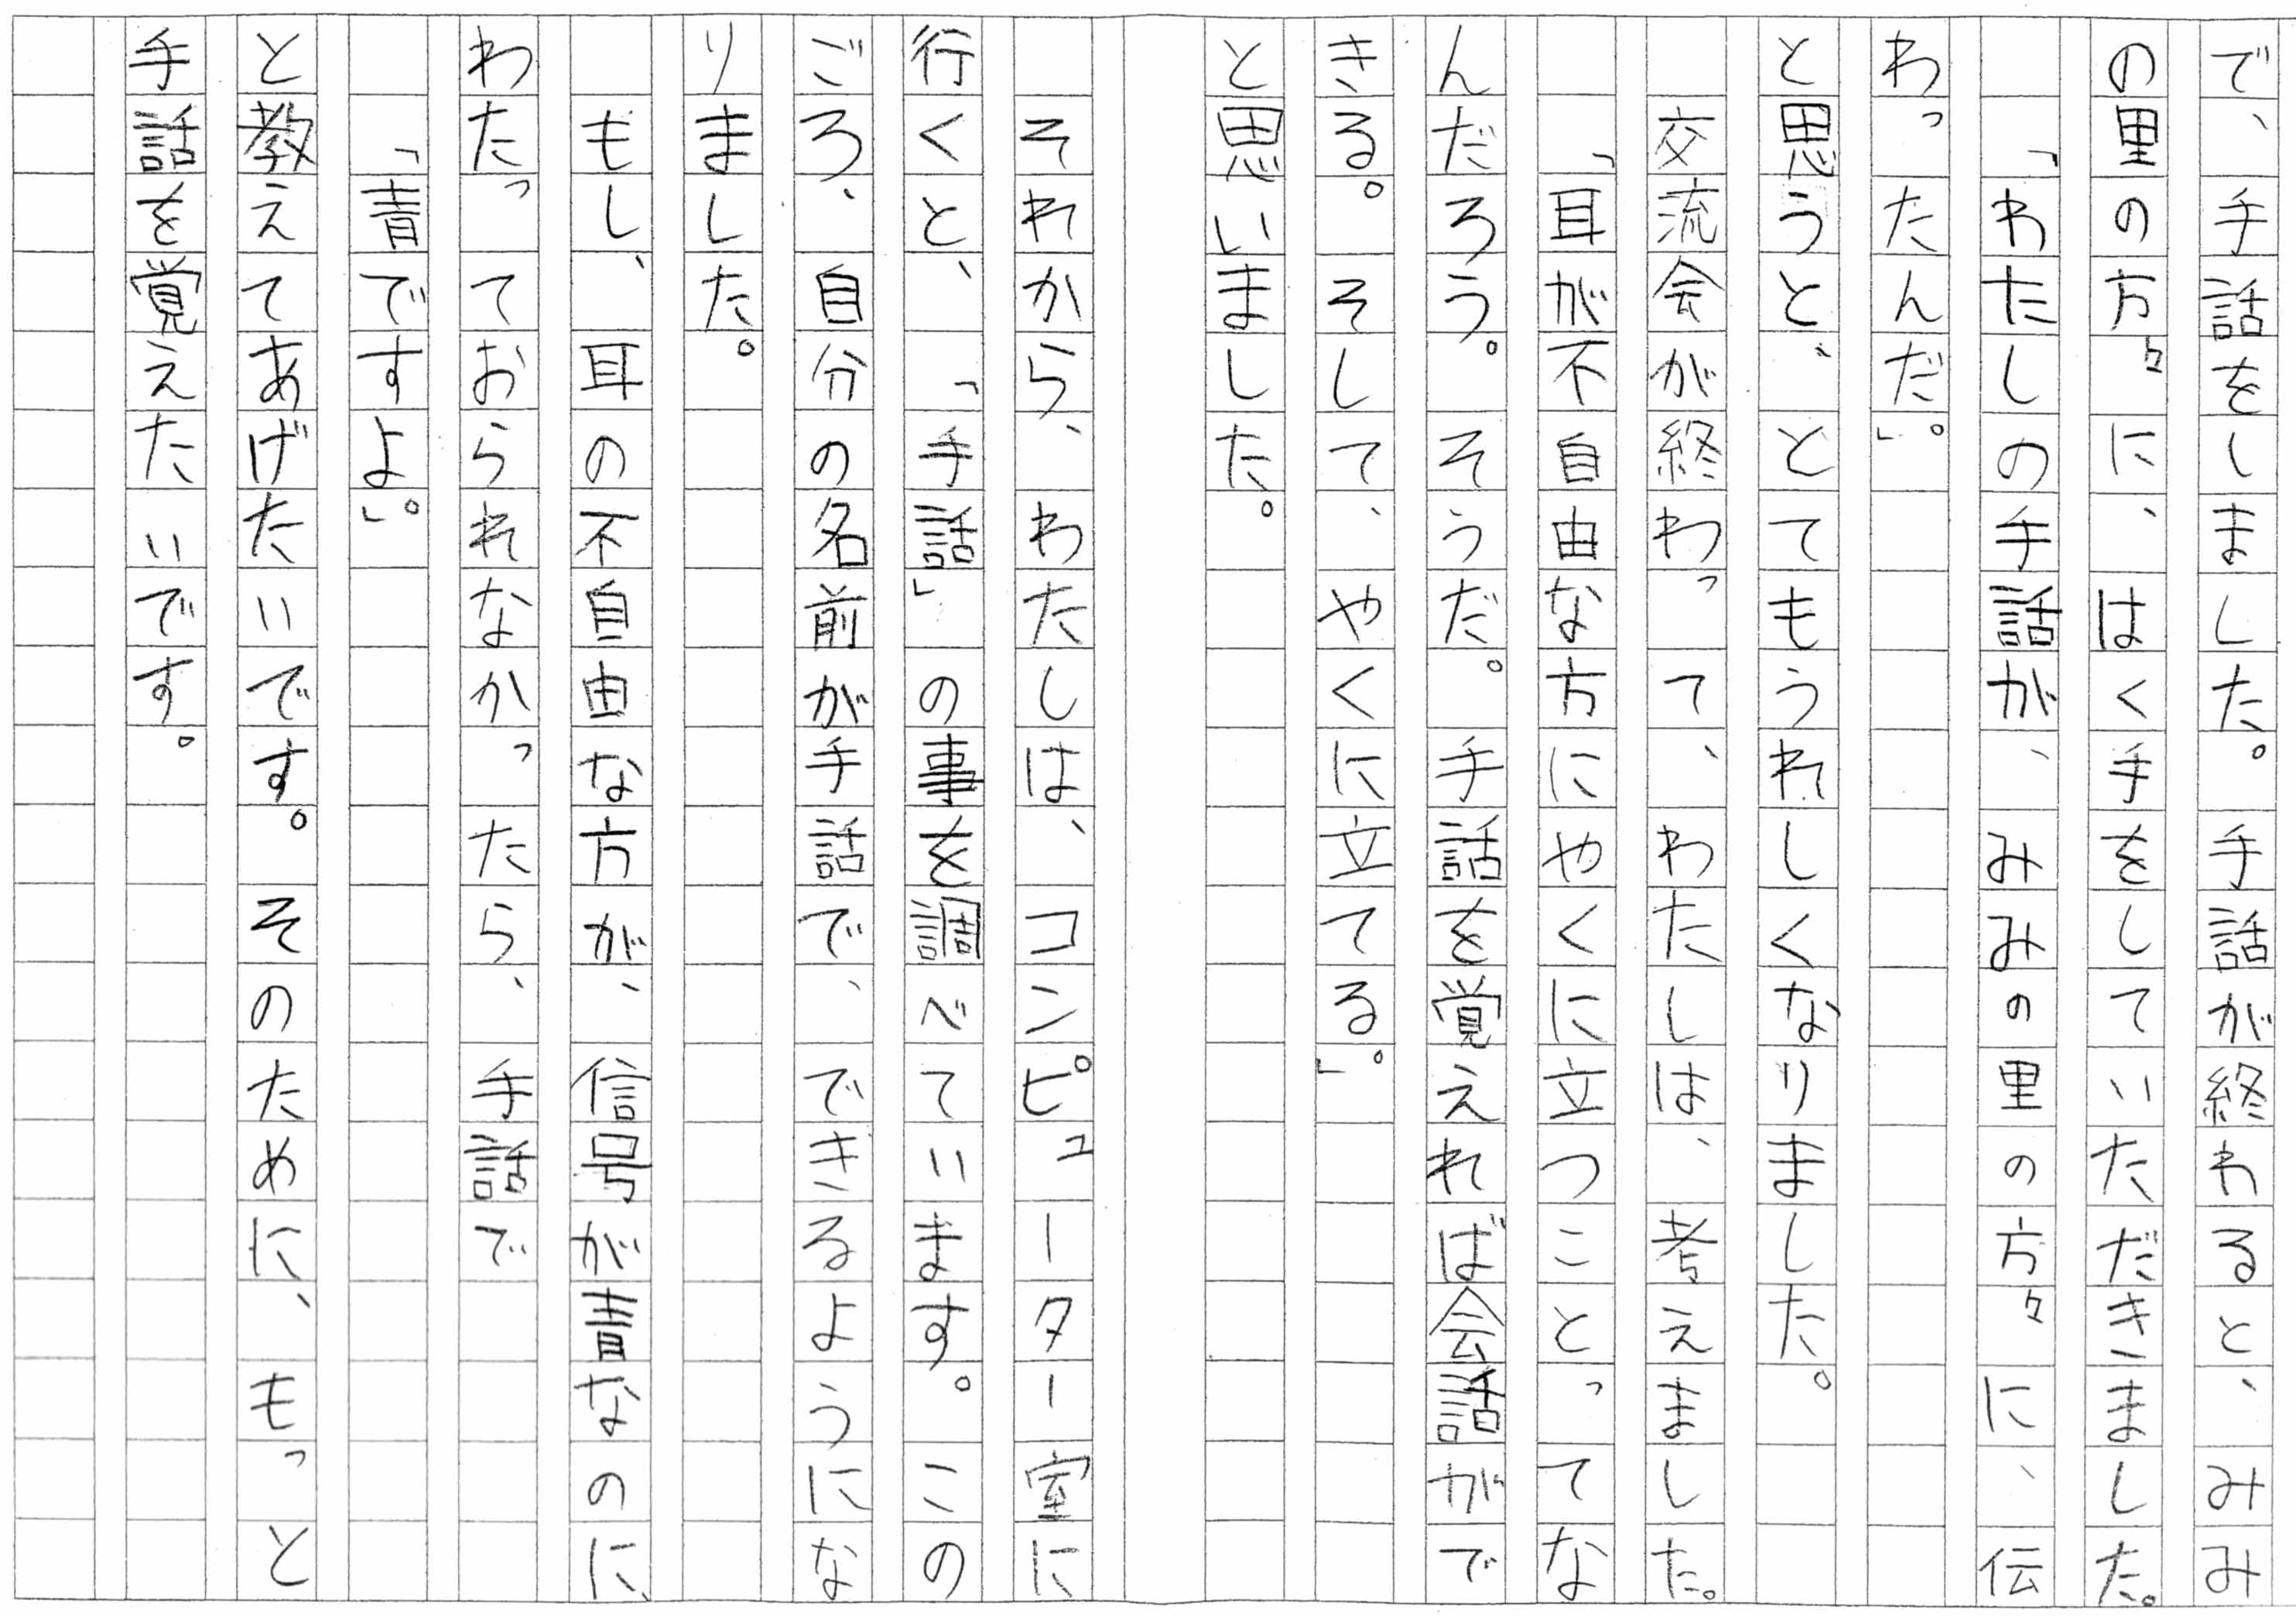 で、手話をしました。手話が終わると、みみ
の里の方々に、はく手をしていただきました。
「わたしの手話が、みみの里の方々に、伝
わったんだ。」
と思うと、とてもうれしくなりました。
交流会が終わって、わたしは、考えました。
「耳が不自由な方にやくに立つことってな
んだろう。そうだ。手話を覚えれば会話がで
きる。そして、やくに立てる。」
と思いました。
それから、わたしは、コンピューター室に
行くと、「手話」の事を調べています。この
ごろ、自分の名前が手話で、できるようにな
りました。
もし、耳の不自由な方が、信号が青なのに、
わたっておられなかったら、手話で
「青ですよ。」
と教えてあげたいです。そのために、もっと
手話を覚えたいです。